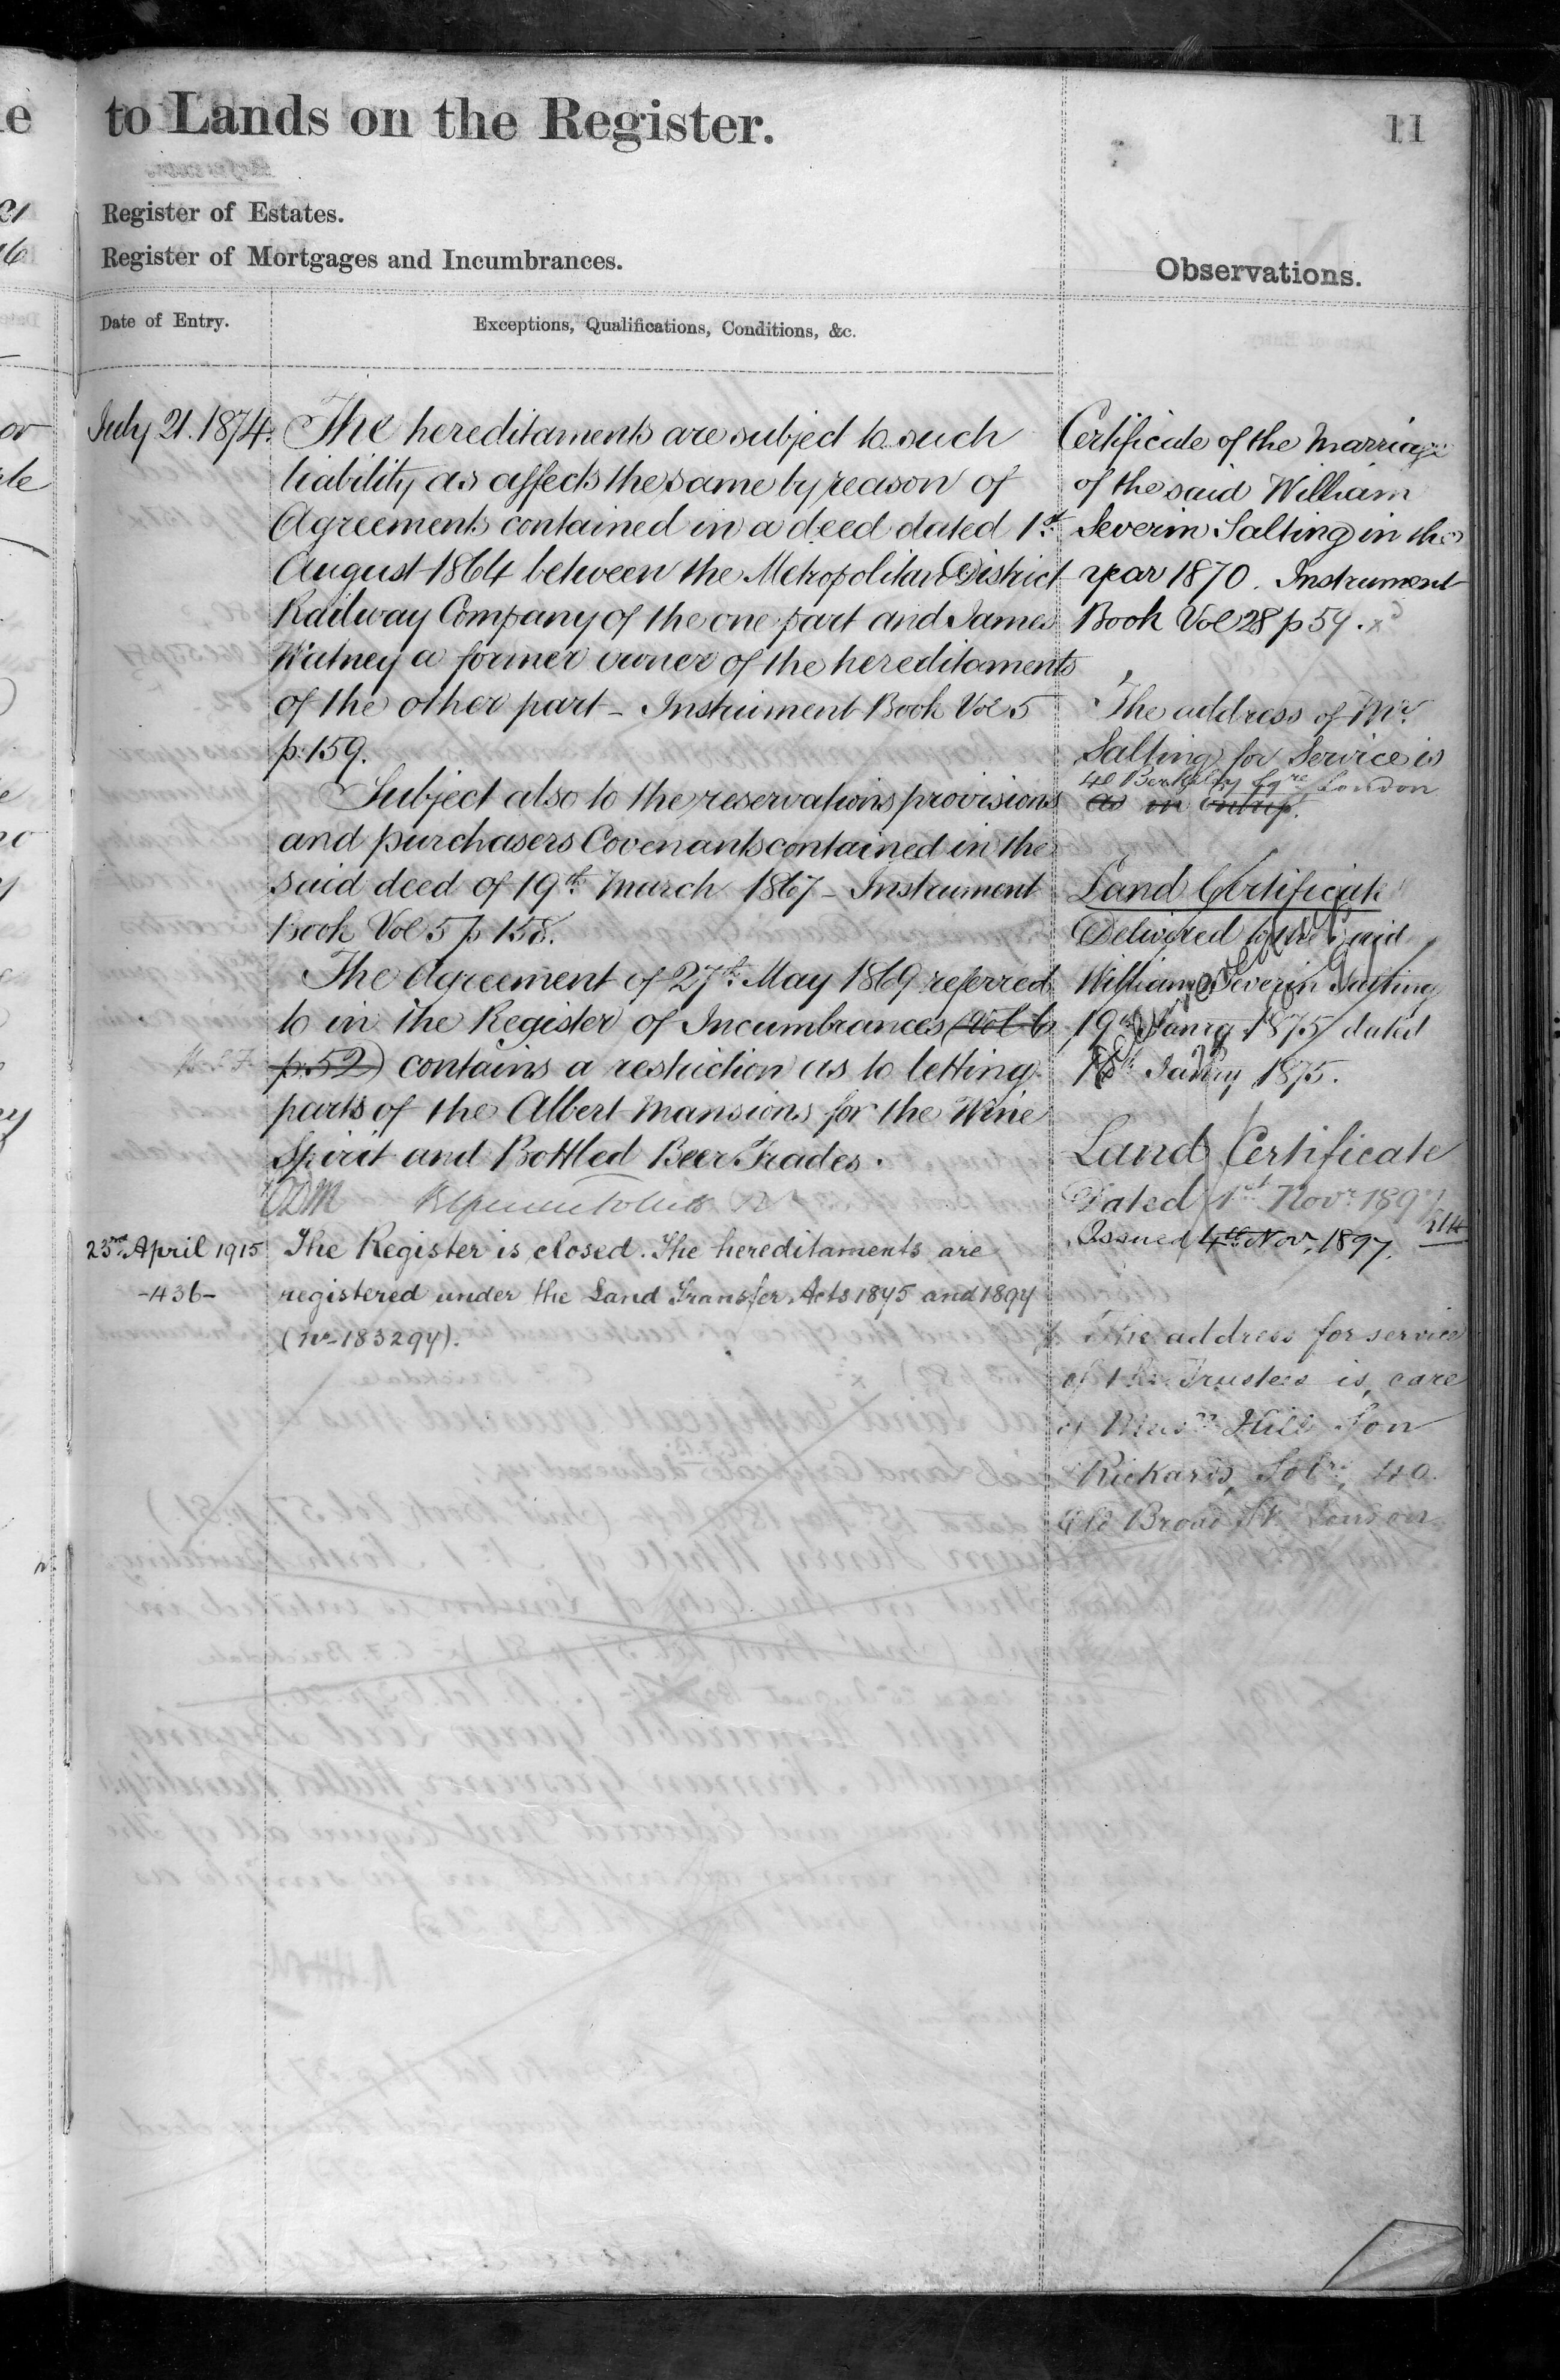 to Lands on the Register.
11
Register of Estates.
Register of Mortgages and Incumbrances.
Observations.
Date of Entry.
Exceptions, Qualifications, Conditions, &c.
July 21. 1874.
The hereditaments are subject to such
liability as affects the same by reason of
Agreements contained in a deed dated 1st
August 1864 between the Metropolitan District
Railway Company of the one part and James
Watney a former owner of the hereditaments
of the other part - Instrument Book Vol 5
p. 159.
Subject also to the reservations provisions
and purchasers Covenants contained in the
said deed of 19th March 1867 - Instrument
Book Vol 5 p 158.
The Agreement of 27th May 1869 referred
to in the Register of Incumbrances (Vol 6
p. 52) contains a restriction as to letting
parts of the Albert Mansions for the Wine
Spirit and Bottled Beer Trades.
23rd April 1915
-436-
The Register is closed. The hereditaments are
registered under the Land Transfer Acts 1875 and 1897
(No 183297).
Certificate of the Marriage
of the said William
Severin Salting in the
year 1870. Instrument
Book Vol 28 p 59.
The address of Mr.
Salting for Service is
40 Berkeley Sqre London
as in
Land Certificate
Delivered to the said
William Severin Salting
19th Janry 1875 dated
18th Janry 1875.
Land Certificate
Dated 1st Novr 1897
Issued 4th Novr 1897.
The address for service
of the Trustees is, care
of Messrs Hill Son
Rickards, Solrs, 40
Old Broad St. London